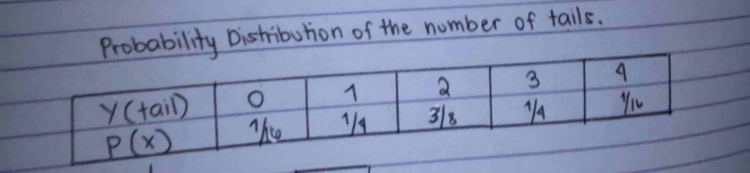 Probability Distribution of the number of tails.
Y (tail) 0 1 2 3 4
P(x) 1/16 1/4 3/8 1/4 1/16